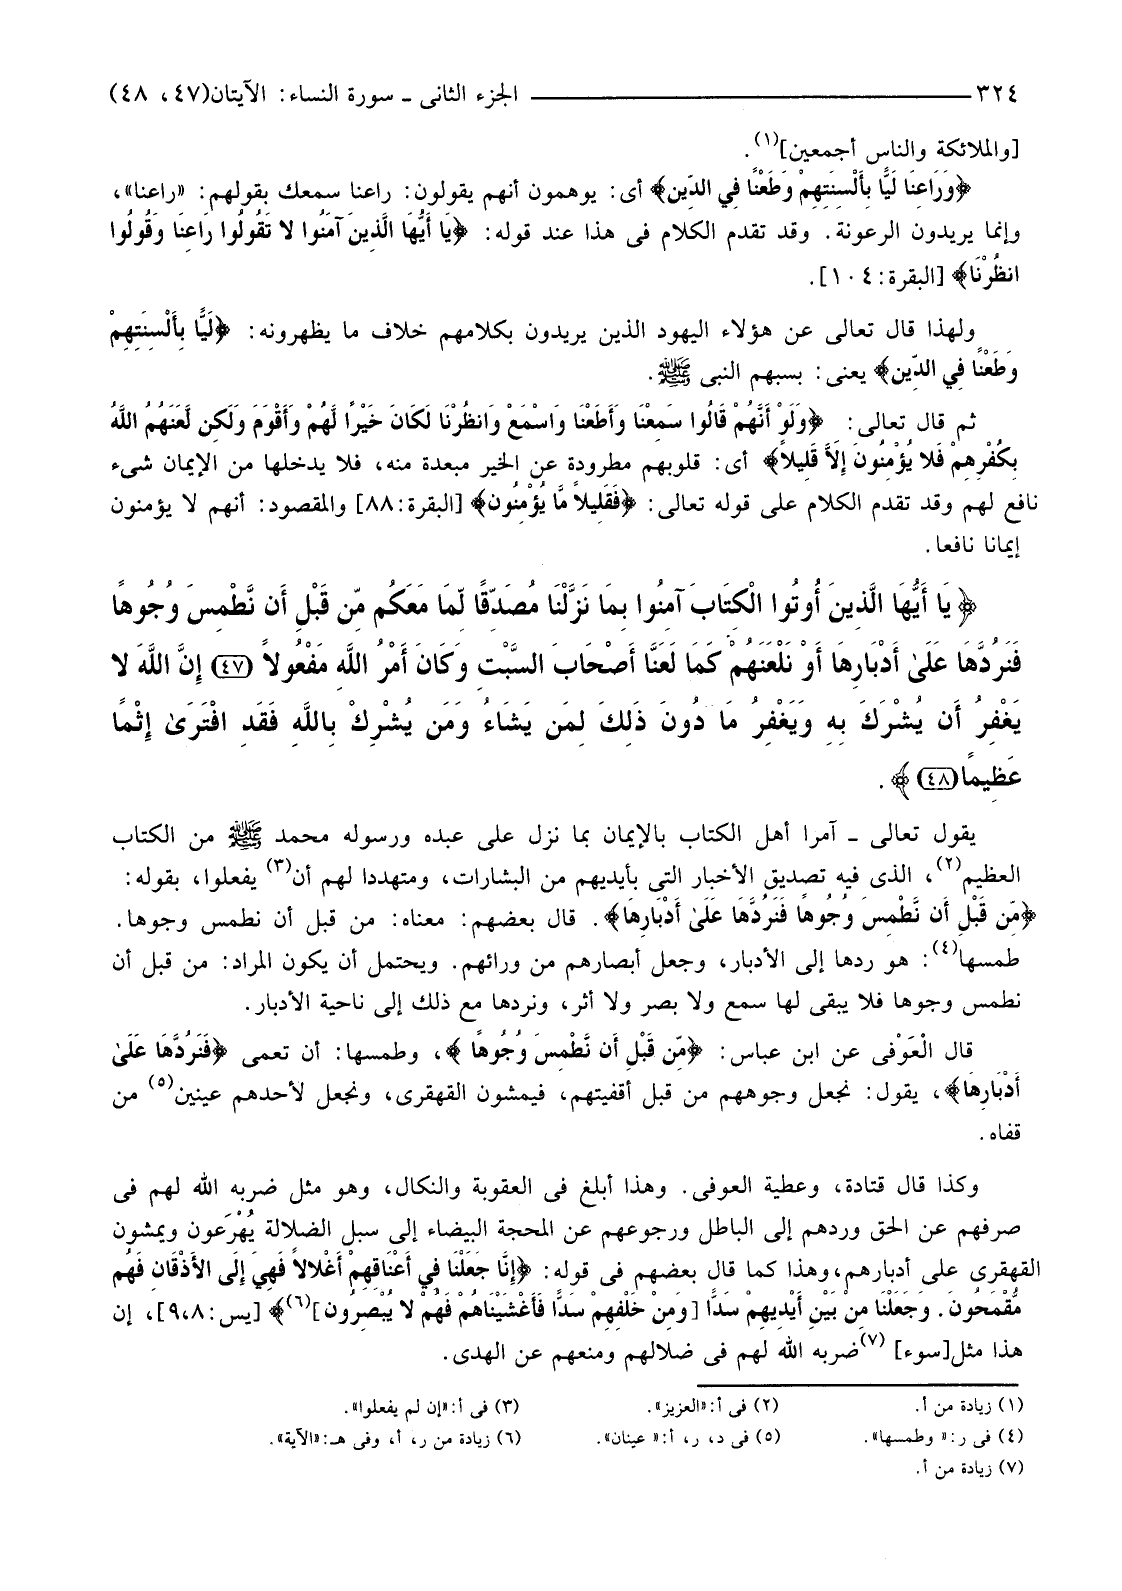 ٣٢٤ ـــــــــــ الجزء الثانى ـ سورة النساء: الآيتان(٤٧، ٤٨)
[والملائكة والناس أجمعين](١).
﴿وَرَاعِنَا لَيًّا بِأَلْسِنَتِهِمْ وَطَعْنًا فِي الدِّين﴾ أى: يوهمون أنهم يقولون: راعنا سمعك بقولهم: «راعنا»،
وإنما يريدون الرعونة. وقد تقدم الكلام فى هذا عند قوله: ﴿يَا أَيُّهَا الَّذِينَ آمَنُوا لا تَقُولُوا رَاعِنَا وَقُولُوا
انظُرْنَا﴾ [البقرة:١٠٤].
ولهذا قال تعالى عن هؤلاء اليهود الذين يريدون بكلامهم خلاف ما يظهرونه: ﴿لَيًّا بِأَلْسِنَتِهِمْ
وَطَعْنًا فِي الدِّين﴾ يعنى: بسبهم النبى ﷺ.
ثم قال تعالى: ﴿وَلَوْ أَنَّهُمْ قَالُوا سَمِعْنَا وَأَطَعْنَا وَاسْمَعْ وَانظُرْنَا لَكَانَ خَيْرًا لَّهُمْ وَأَقْوَمَ وَلَكِن لَّعَنَهُمُ اللَّهُ
بِكُفْرِهِمْ فَلا يُؤْمِنُونَ إِلاَّ قَلِيلاً﴾ أى: قلوبهم مطرودة عن الخير مبعدة منه، فلا يدخلها من الإيمان شىء
نافع لهم وقد تقدم الكلام على قوله تعالى: ﴿فَقَلِيلاً مَّا يُؤْمِنُون﴾ [البقرة:٨٨] والمقصود: أنهم لا يؤمنون
إيمانا نافعا.
﴿يَا أَيُّهَا الَّذِينَ أُوتُوا الْكِتَابَ آمِنُوا بِمَا نَزَّلْنَا مُصَدِّقًا لِّمَا مَعَكُم مِّن قَبْلِ أَن نَّطْمِسَ وُجُوهًا
فَنَرُدَّهَا عَلَىٰ أَدْبَارِهَا أَوْ نَلْعَنَهُمْ كَمَا لَعَنَّا أَصْحَابَ السَّبْتِ وَكَانَ أَمْرُ اللَّهِ مَفْعُولاً (٤٧) إِنَّ اللَّهَ لا
يَغْفِرُ أَن يُشْرَكَ بِهِ وَيَغْفِرُ مَا دُونَ ذَلِكَ لِمَن يَشَاءُ وَمَن يُشْرِكْ بِاللَّهِ فَقَدِ افْتَرَىٰ إِثْمًا
عَظِيمًا(٤٨)﴾.
يقول تعالى ـ آمرا أهل الكتاب بالإيمان بما نزل على عبده ورسوله محمد ﷺ من الكتاب
العظيم(٢)، الذى فيه تصديق الأخبار التى بأيديهم من البشارات، ومتهددا لهم أن(٣) يفعلوا، بقوله:
﴿مِّن قَبْلِ أَن نَّطْمِسَ وُجُوهًا فَنَرُدَّهَا عَلَىٰ أَدْبَارِهَا﴾. قال بعضهم: معناه: من قبل أن نطمس وجوها.
طمسها(٤): هو ردها إلى الأدبار، وجعل أبصارهم من ورائهم. ويحتمل أن يكون المراد: من قبل أن
نطمس وجوها فلا يبقى لها سمع ولا بصر ولا أثر، ونردها مع ذلك إلى ناحية الأدبار.
قال الْعَوْفى عن ابن عباس: ﴿مِّن قَبْلِ أَن نَّطْمِسَ وُجُوهًا ﴾، وطمسها: أن تعمى ﴿فَنَرُدَّهَا عَلَىٰ
أَدْبَارِهَا﴾، يقول: نجعل وجوههم من قبل أقفيتهم، فيمشون القهقرى، ونجعل لأحدهم عينين(٥) من
قفاه.
وكذا قال قتادة، وعطية العوفى. وهذا أبلغ فى العقوبة والنكال، وهو مثل ضربه الله لهم فى
صرفهم عن الحق وردهم إلى الباطل ورجوعهم عن المحجة البيضاء إلى سبل الضلالة يُهْرَعون ويمشون
القهقرى على أدبارهم،وهذا كما قال بعضهم فى قوله: ﴿إِنَّا جَعَلْنَا فِي أَعْنَاقِهِمْ أَغْلالاً فَهِيَ إِلَى الأَذْقَانِ فَهُم
مُّقْمَحُونَ. وَجَعَلْنَا مِنْ بَيْنِ أَيْدِيهِمْ سَدًّا [وَمِنْ خَلْفِهِمْ سَدًّا فَأَغْشَيْنَاهُمْ فَهُمْ لا يُبْصِرُون](٦)﴾ [يس:٨،٩]، إن
هذا مثل[سوء] (٧)ضربه الله لهم فى ضلالهم ومنعهم عن الهدى.
(١) زيادة من أ. (٢) فى أ:«العزيز». (٣) فى أ:«إن لم يفعلوا».
(٤) فى ر:« وطمسها». (٥) فى د، ر، أ:« عينان». (٦) زيادة من ر، أ، وفى هـ:«الآية».
(٧) زيادة من أ.